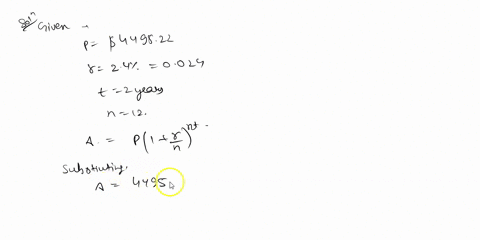 Solⁿ Given :-
P = $4495.22
r = 2.4% = 0.024
t = 2 years
n = 12.
A = P(1 + r/n)^nt .
Substituting,
A = 4495.